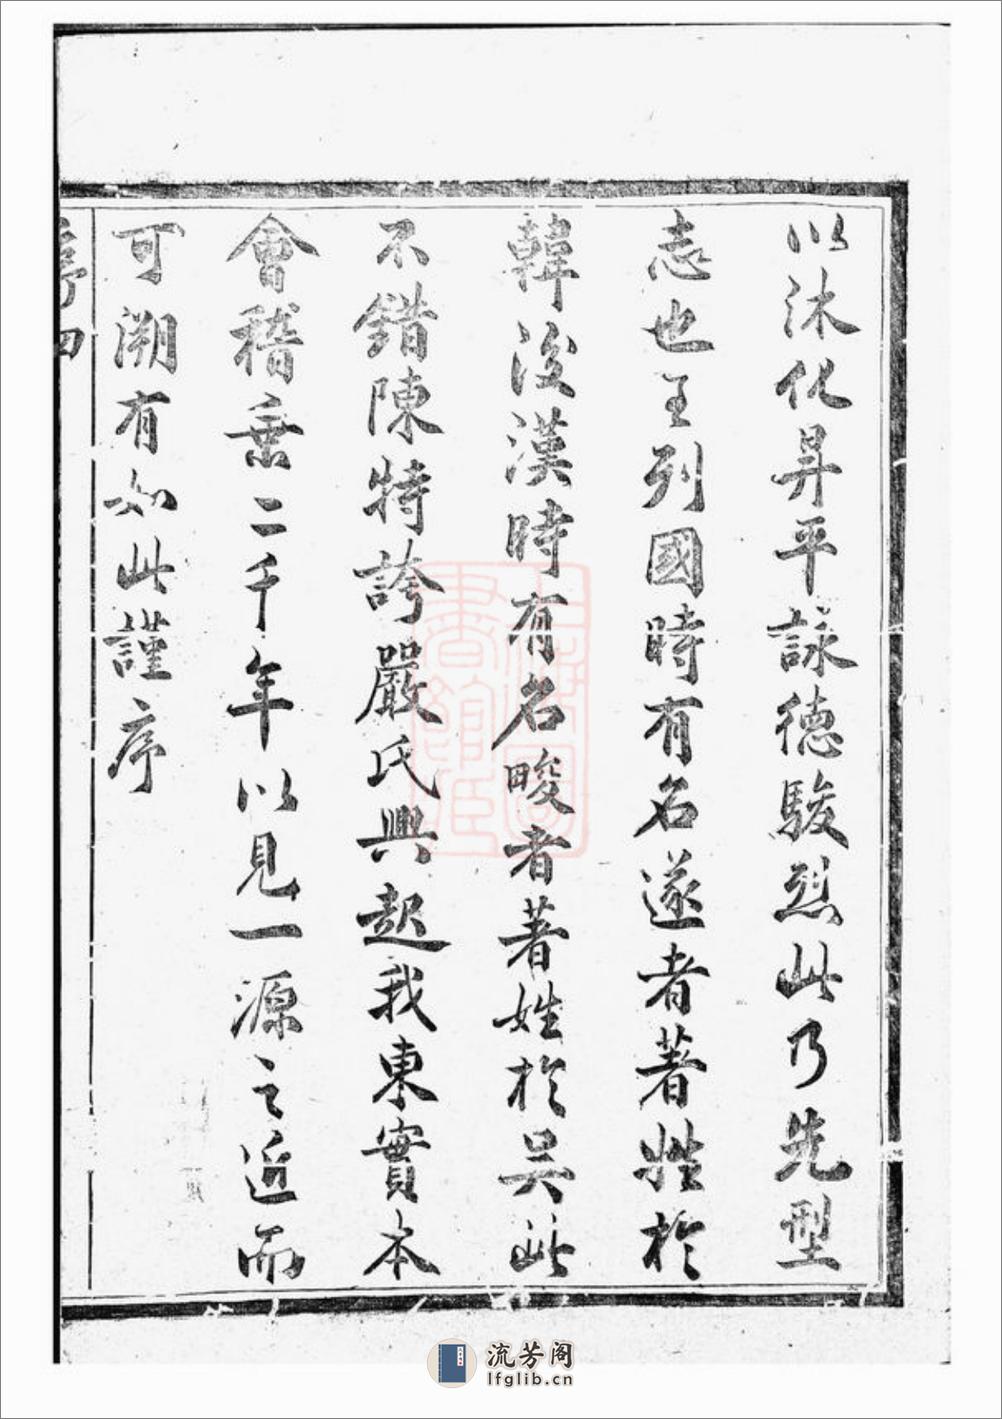 以沐化昇平詠德駿烈此乃先型
志也至列國時有名遂者著姓於
韓後漢時有名畯者著姓於吴此
不錯陳特誇嚴氏興起我東實本
會稽乗二千年以見一源之近而
可溯有如此謹序
序 四
上海圖書館臧
流芳阁
lfglib.cn